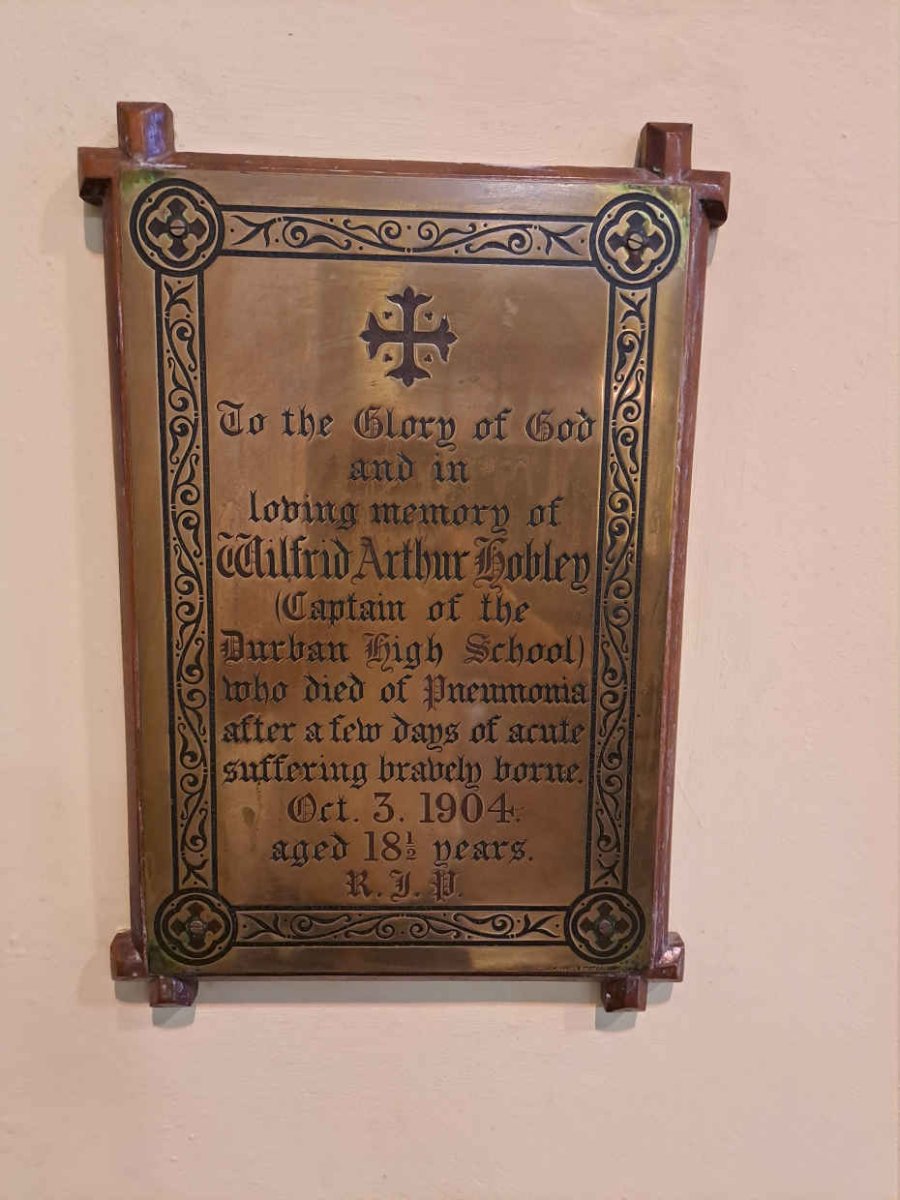 To the Glory of God
and in
loving memory of
Wilfrid Arthur Hobley
(Captain of the
Durban High School)
who died of Pneumonia
after a few days of acute
suffering bravely borne.
Oct. 3. 1904.
aged 18½ years.
R. I. P.